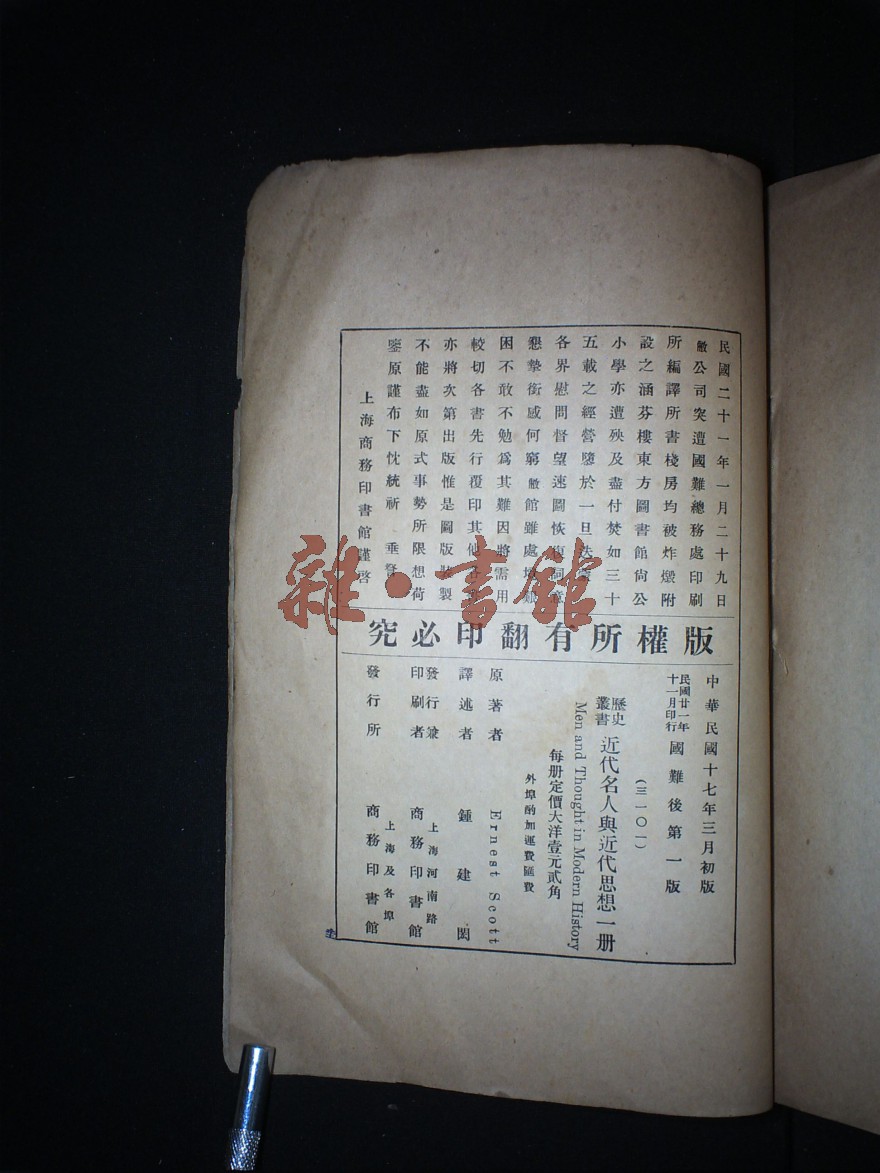 民國二十一年一月二十九日
敝公司突遭國難總務處印刷
所編譯所書棧房均被炸燬附
設之涵芬樓東方圖書館尙公
小學亦遭殃及盡付焚如三十
五載之經營隳於一旦迭
各界慰問督望速圖恢
懇摯銜感何窮敝館雖處
困不敢不勉爲其難因將需用
較切各書先行覆印其他
亦將次第出版惟是圖版
製
不能盡如原式事勢所限想荷
鑒原謹布下忱統祈 垂
上海商務印書館謹啓
版權所有翻印必究
中華民國十七年三月初版
民國廿一年十一月印行 國難後第一版
(三一〇一)
歷史叢書 近代名人與近代思想一册
Men and Thought in Modern History
每册定價大洋壹元貳角
外埠酌加運費匯費
原著者 Ernest Scott
譯述者 鍾建閎
發行兼印刷者 上海河南路 商務印書館
發行所 上海及各埠 商務印書館
雜·書館